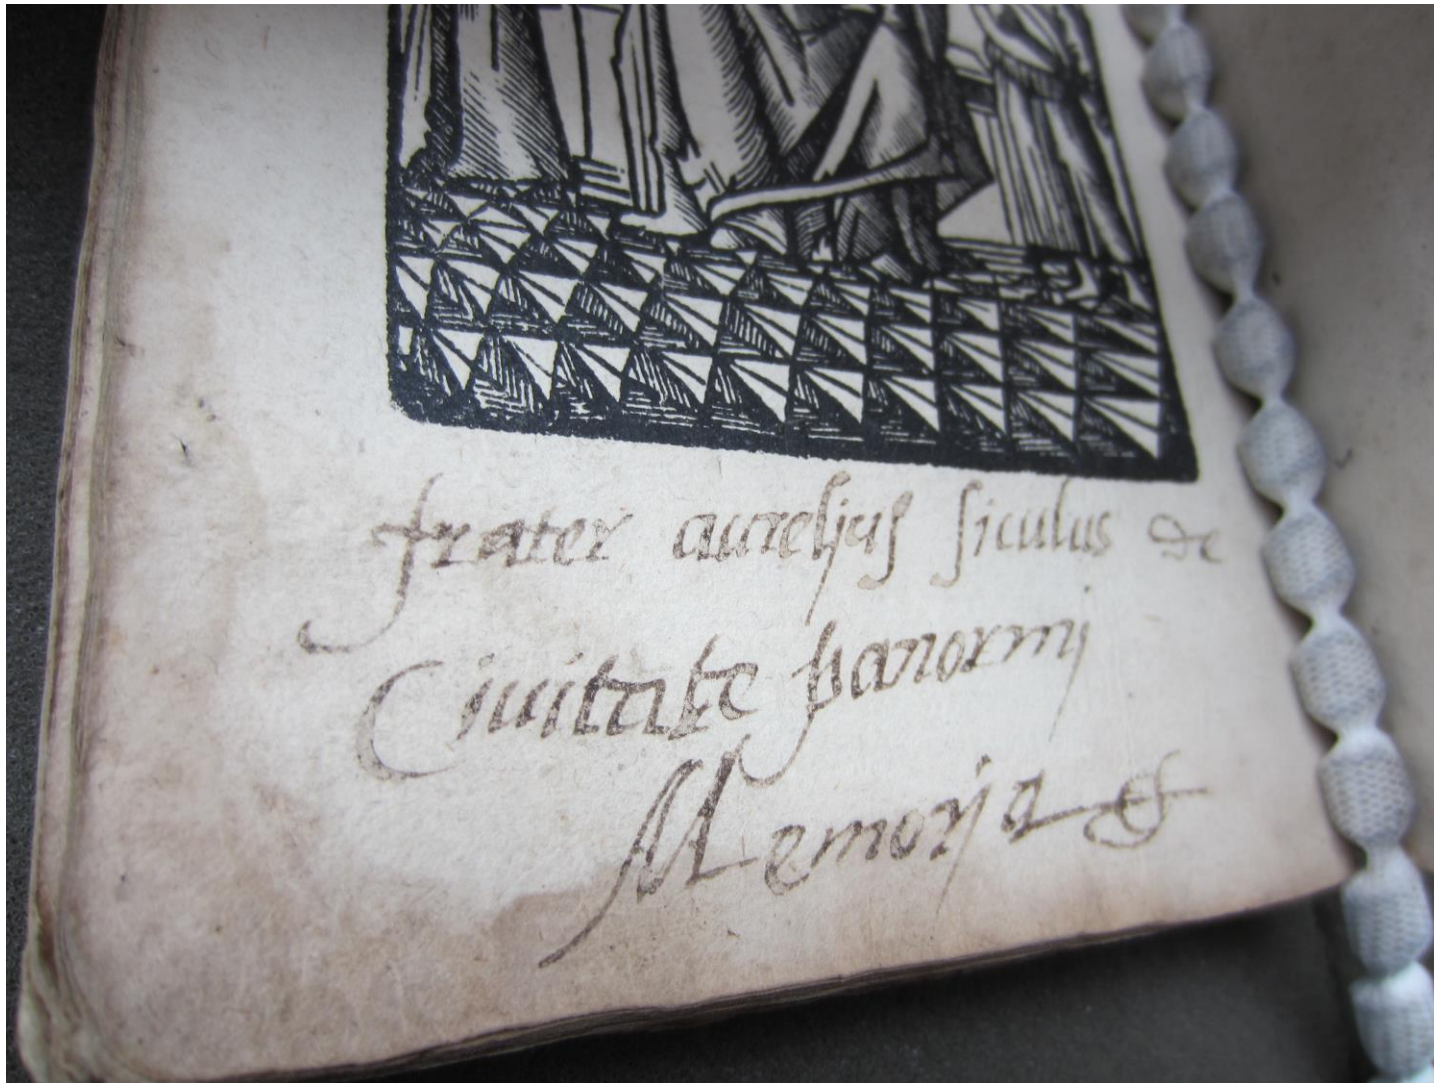 frater aurelius siculus de
Ciuitate panormi
Memoria &